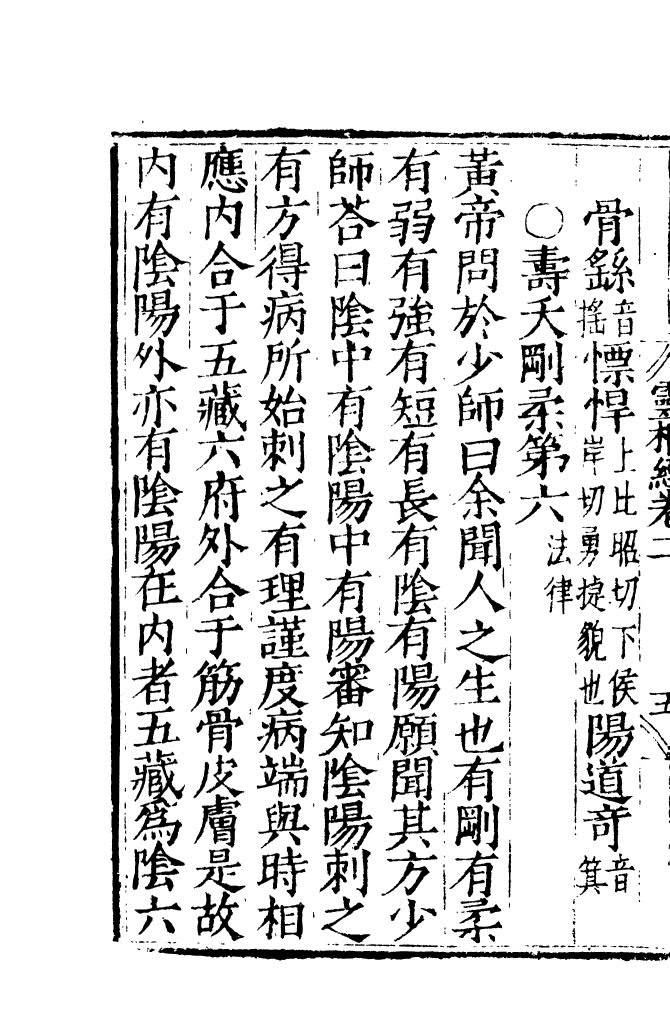 靈樞經卷二 五
骨繇音搖慓悍上比昭切下侯岸切勇㨗貌也陽道奇音箕
○壽夭剛柔第六法律
黃帝問於少師曰余聞人之生也有剛有柔
有弱有強有短有長有陰有陽願聞其方少
師荅曰陰中有陰陽中有陽審知陰陽刺之
有方得病所始刺之有理謹度病端與時相
應内合于五藏六府外合于筋骨皮膚是故
内有陰陽外亦有陰陽在内者五藏爲陰六